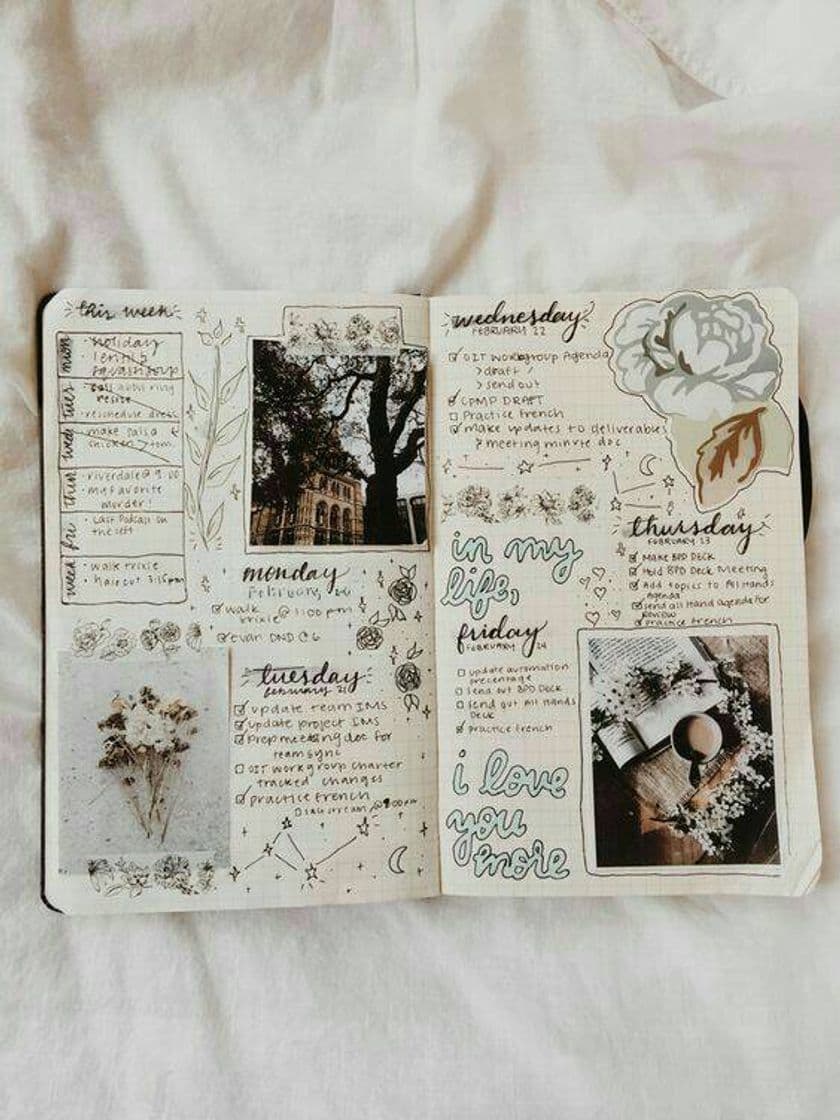 this week
mon
holiday
lentil &
squash soup
tues
call about ring
resize
reschedule dress
wed
make salsa &
chicken
thur
riverdale @ 9:00
my favorite
murder!
fri
Last Podcast on
the left
week
walk trixie
haircut 3:15pm
monday
february, 20
walk
trixie @ 1:00 pm
evan DND @ 6
tuesday
february 21
update team IMS
update project IMS
prep meeting doc for
team sync
OIT workgroup charter
tracked changes
practice french
@ 9:00pm
wednesday
FEBRUARY 22
OIT workgroup Agenda
> draft
> send out
CPMP DRAFT
Practice french
make updates to deliverables
& meeting minute doc
in my
life,
thursday
FEBRUARY 23
MAKE BPD DECK
Hold BPD Deck Meeting
Add topics to All Hands
Agenda
send all Hand agenda for
Review
practice french
friday
FEBRUARY 24
update automation
precentage
send out BPD Deck
send out All Hands
Deck
practice french
i love
you
more